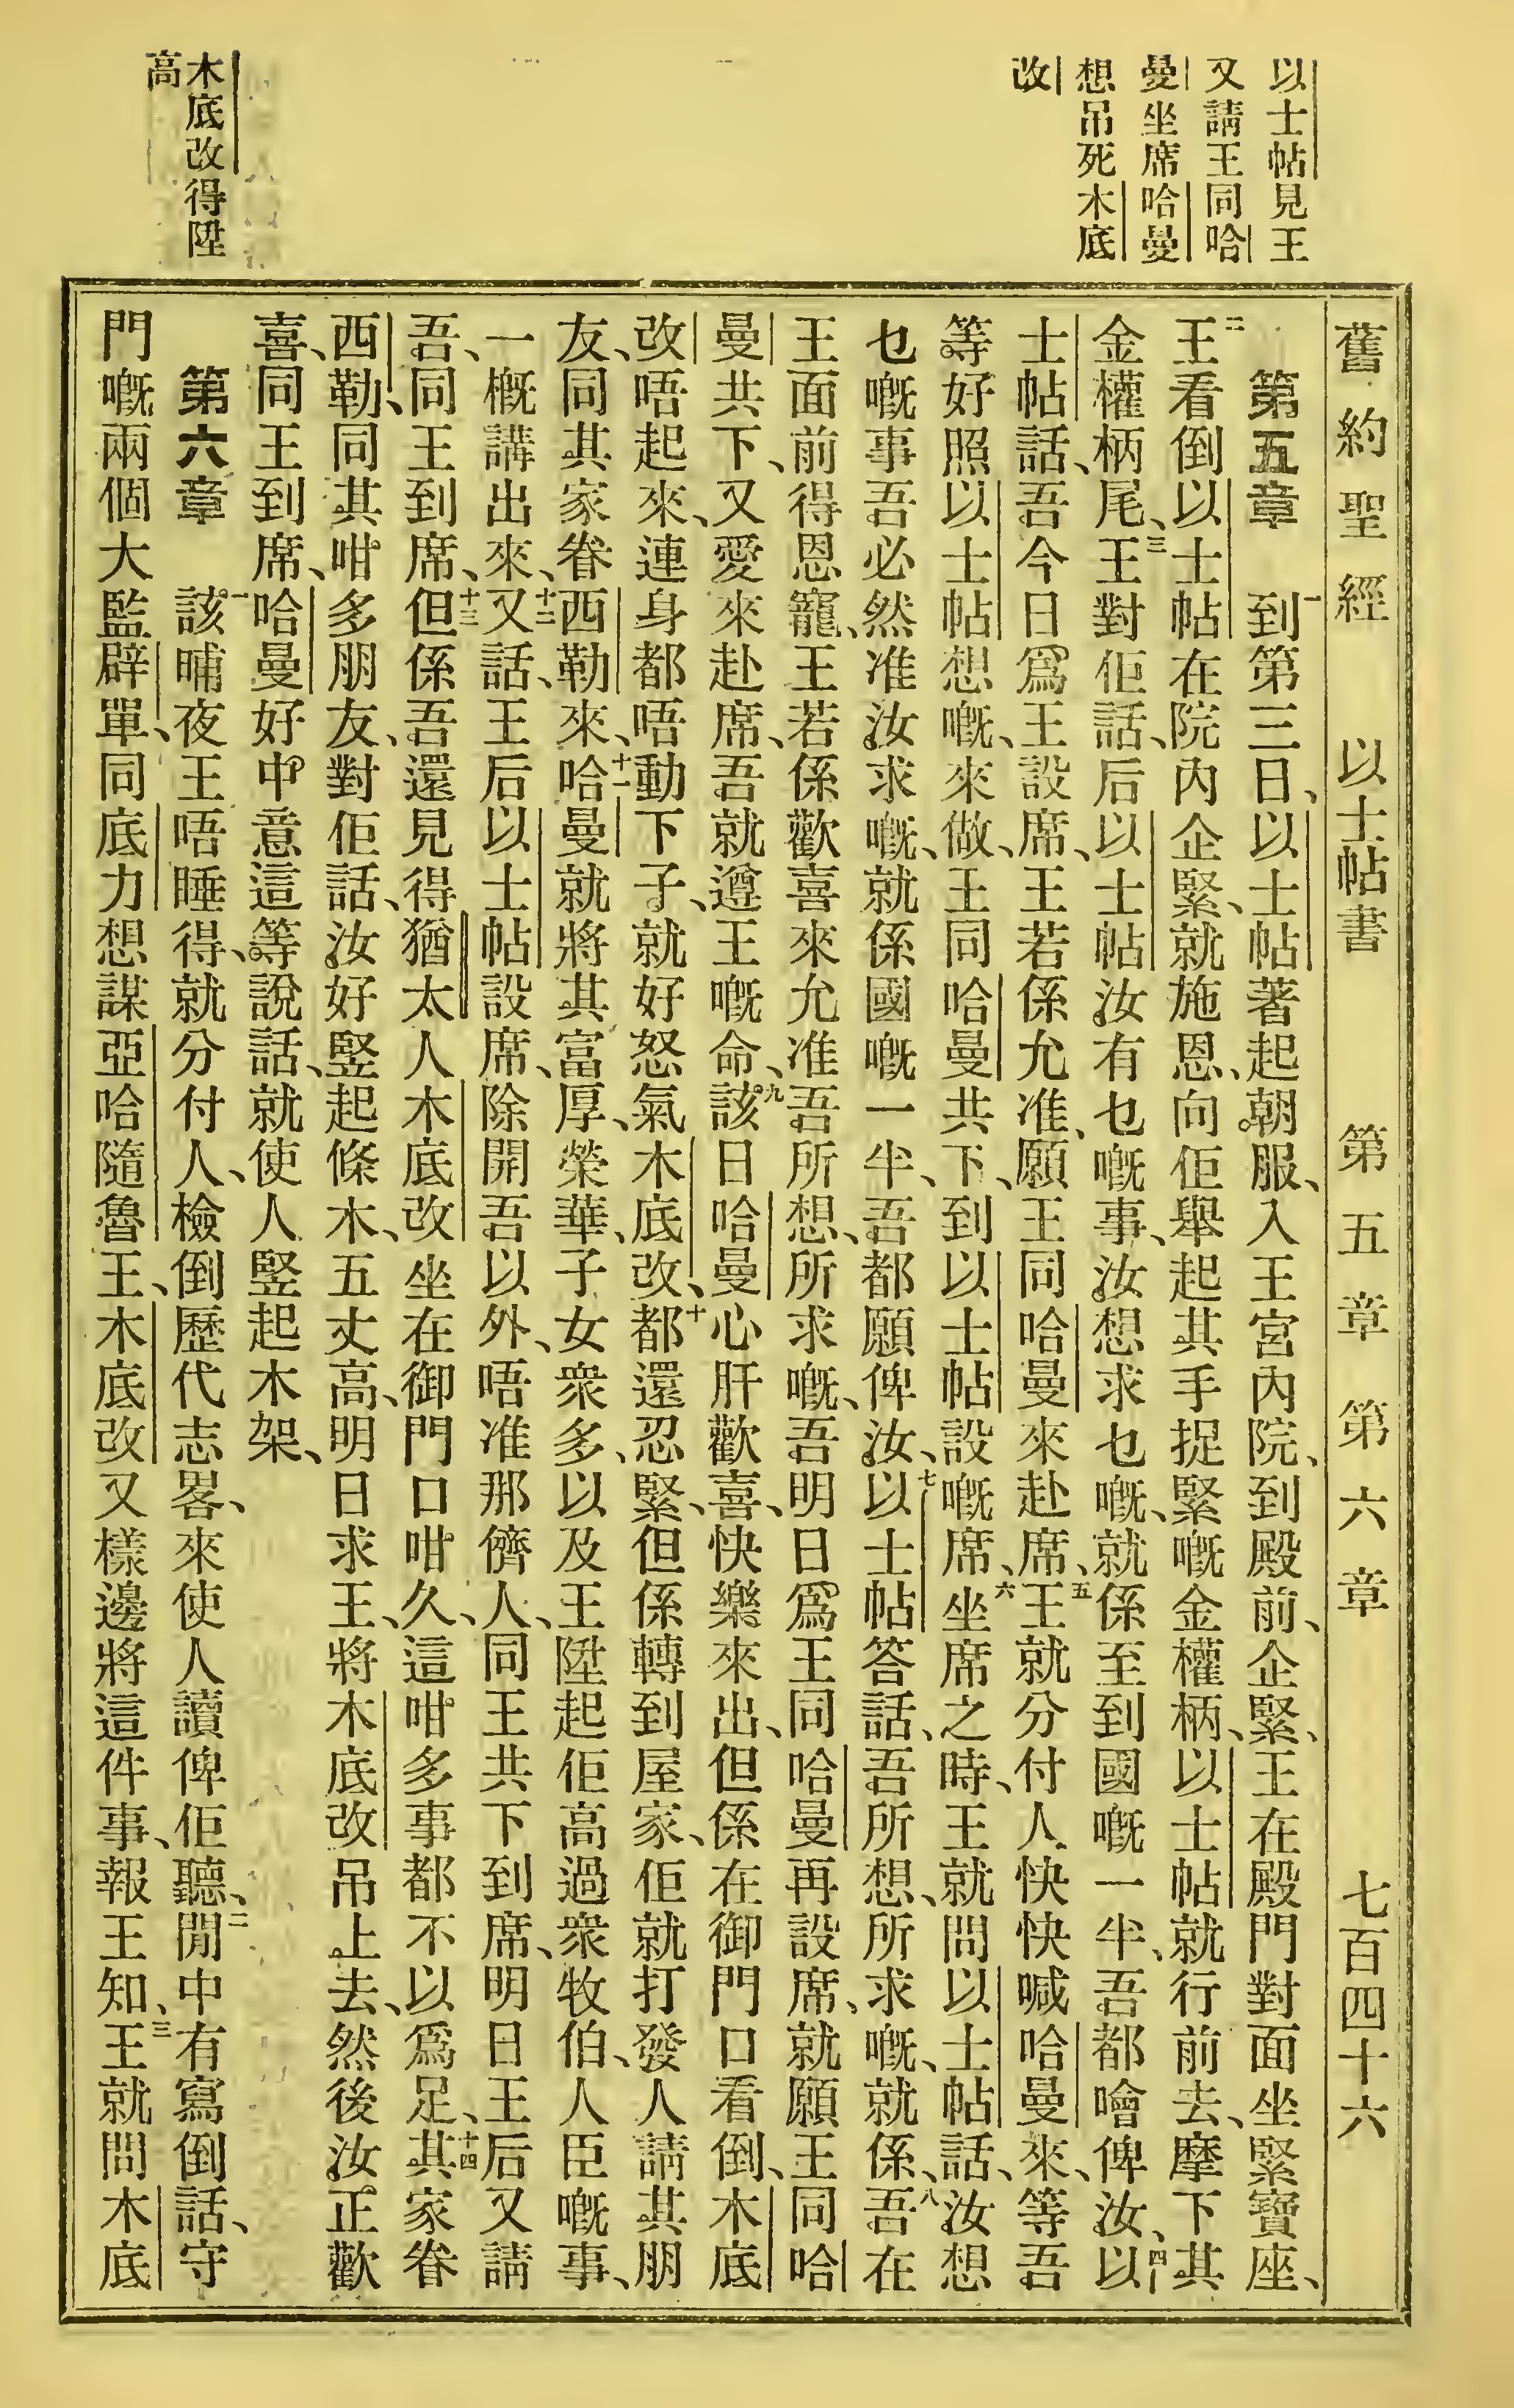 以士帖見王
又請王同哈
曼坐席哈曼
想吊死木底
改
木底改得陞
高
舊約聖經　以士帖書　第五章　第六章　七百四十六
第五章　一到第三日、以士帖著起朝服、入王宮內院、到殿前、企緊、王在殿門對面坐緊寶座、
二王看倒以士帖在院內企緊、就施恩、向佢舉起其手捉緊嘅金權柄、以士帖就行前去、摩下其
金權柄尾、三王對佢話、后以士帖汝有乜嘅事、汝想求乜嘅、就係至到國嘅一半、吾都噲俾汝、四以
士帖話、吾今日爲王設席、王若係允准、願王同哈曼來赴席、五王就分付人快快喊哈曼來、等吾
等好照以士帖想嘅、來做、王同哈曼共下、到以士帖設嘅席、六坐席之時、王就問以士帖話、汝想
乜嘅事吾必然准汝求嘅、就係國嘅一半、吾都願俾汝、七以士帖答話、吾所想、所求嘅、就係、八吾在
王面前得恩寵、王若係歡喜來允准吾所想、所求嘅、吾明日爲王同哈曼再設席、就願王同哈
曼共下、又愛來赴席、吾就遵王嘅命、九該日哈曼心肝歡喜、快樂來出、但係在御門口看倒、木底
改唔起來、連身都唔動下子、就好怒氣木底改、十都還忍緊、但係轉到屋家、佢就打發人請其朋
友、同其家眷西勒來、十一哈曼就將其富厚、榮華、子女衆多、以及王陞起佢高過衆牧伯、人臣嘅事、
一概講出來、十二又話、王后以士帖設席、除開吾以外、唔准那儕人、同王共下到席、明日王后又請
吾、同王到席、十三但係吾還見得猶太人木底改坐在御門口咁久、這咁多事都不以爲足、十四其家眷
西勒、同其咁多朋友、對佢話、汝好竪起條木、五丈高、明日求王、將木底改吊上去、然後汝正歡
喜、同王到席、哈曼好中意這等說話、就使人竪起木架、
第六章　一該晡夜王唔睡得、就分付人、檢倒歷代志畧、來使人讀俾佢聽、二聞中有寫倒話、守
門嘅兩個大監辟單、同底力想謀亞哈隨魯王、木底改又樣邊將這件事、報王知、三王就問木底